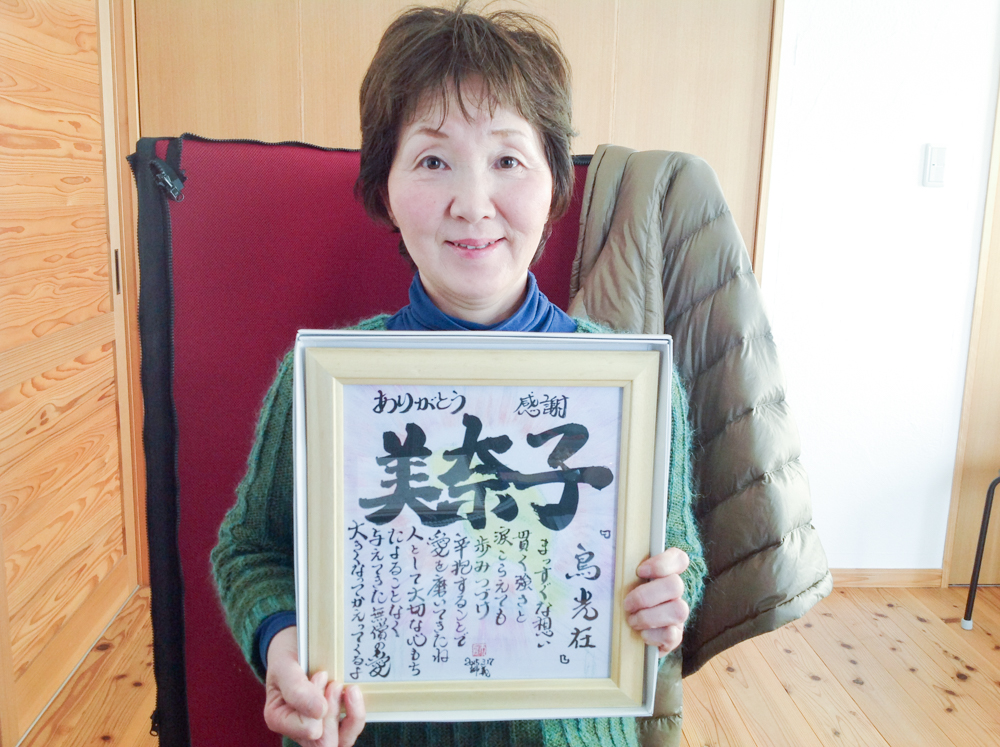 ありがとう 感謝
美奈子
『鳥光在』
まっすぐな想い
貫く強さと
涙こらえても
歩みつづけ
辛抱することで
愛を磨いてきたね
人として大切な心もち
たよることなく
与えてきた無償の愛
大きくなってかえってくるよ